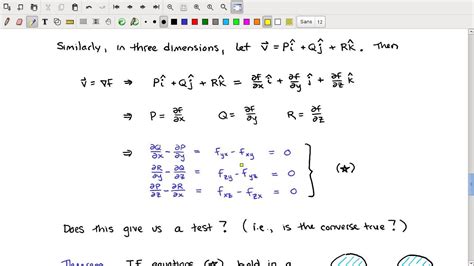 Sans 12
Similarly, in three dimensions, let v⃗ = Pî + Qĵ + Rk̂. Then
v⃗ = ∇f ⇒ Pî + Qĵ + Rk̂ = ∂f/∂x î + ∂f/∂y ĵ + ∂f/∂z k̂
⇒ P = ∂f/∂x Q = ∂f/∂y R = ∂f/∂z
⇒ ∂Q/∂x - ∂P/∂y = f_yx - f_xy = 0
∂R/∂y - ∂Q/∂z = f_zy - f_yz = 0 (★)
∂P/∂z - ∂R/∂x = f_xz - f_zx = 0
Does this give us a test? (i.e., is the converse true?)
Theorem IF equations (★) hold in a